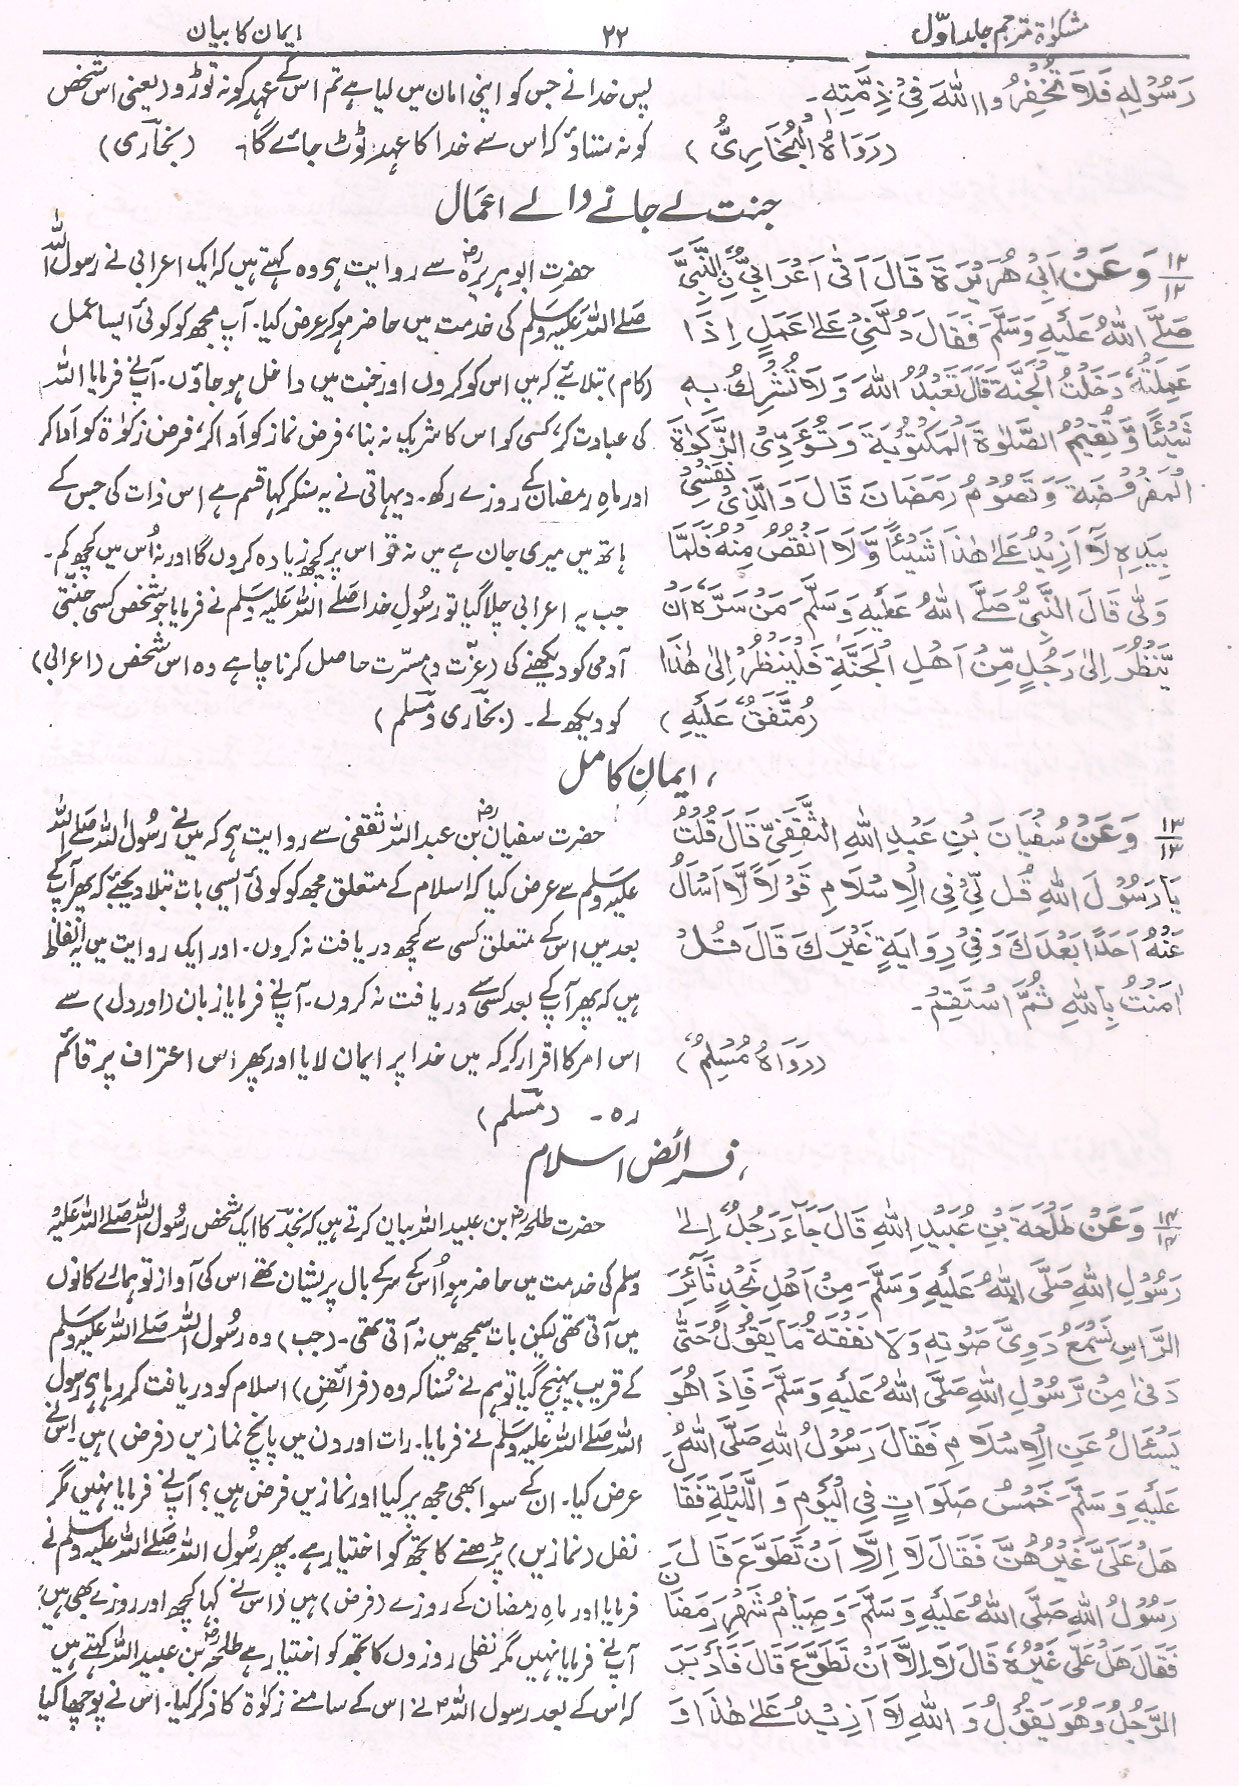 مشکوٰۃ مترجم جلد اوّل ۲۲ ایمان کا بیان
رَسُوْلِهٖ فَلَا تُخْفِرُوا اللّٰهَ فِیْ ذِمَّتِهٖ۔
(رَوَاهُ الْبُخَارِیُّ)
پس خدا نے جس کو اپنی امان میں لیا ہے تم اس کے عہد کو نہ توڑو (یعنی اس شخص
کو نہ ستاؤ کہ اس سے خدا کا عہد ٹوٹ جائے گا۔ (بخاری)
جنت لے جانے والے اعمال
۱۲/۱۲ وَعَنْ اَبِیْ هُرَیْرَةَ قَالَ اَتٰی اَعْرَابِیٌّ نِ النَّبِیَّ
صَلَّے اللّٰهُ عَلَیْهِ وَسَلَّمَ فَقَالَ دُلَّنِیْ عَلٰے عَمَلٍ اِذَا
عَمِلْتُهٗ دَخَلْتُ الْجَنَّةَ قَالَ تَعْبُدُ اللّٰهَ وَلَا تُشْرِكُ بِهٖ
شَیْئًا وَّتُقِیْمُ الصَّلٰوةَ الْمَكْتُوْبَةَ وَتُؤَدِّی الزَّكٰوةَ
الْمَفْرُوْضَةَ وَتَصُوْمُ رَمَضَانَ قَالَ وَالَّذِیْ نَفْسِیْ
بِیَدِهٖ لَا اَزِیْدُ عَلٰے هٰذَا شَیْئًا وَّلَا اَنْقُصُ مِنْهُ فَلَمَّا
وَلّٰی قَالَ النَّبِیُّ صَلَّے اللّٰهُ عَلَیْهِ وَسَلَّمَ مَنْ سَرَّهٗ اَنْ
یَّنْظُرَ اِلٰی رَجُلٍ مِّنْ اَهْلِ الْجَنَّةِ فَلْیَنْظُرْ اِلٰی هٰذَا
(مُتَّفَقٌ عَلَیْهِ)
حضرت ابوہریرہؓ سے روایت ہے وہ کہتے ہیں کہ ایک اعرابی نے رسول اللہ
صلے اللہ علیہ وسلم کی خدمت میں حاضر ہو کر عرض کیا۔ آپ مجھ کو کوئی ایسا عمل
(کام) بتلائیے کہ میں اس کو کروں اور جنت میں داخل ہو جاؤں۔ آپ نے فرمایا اللہ
کی عبادت کر، کسی کو اس کا شریک نہ بنا، فرض نماز کو ادا کر، فرض زکوٰۃ کو ادا کر
اور ماہِ رمضان کے روزے رکھ۔ دیہاتی نے یہ سنکر کہا قسم ہے اس ذات کی جس کے
ہاتھ میں میری جان ہے میں نہ تو اس پر کچھ زیادہ کروں گا اور نہ اُس میں کچھ کم۔
جب یہ اعرابی چلا گیا تو رسولِ خدا صلے اللہ علیہ وسلم نے فرمایا جو شخص کسی جنّتی
آدمی کو دیکھنے کی (عزّت و) مسرّت حاصل کرنا چاہے وہ اس شخص (اعرابی)
کو دیکھ لے۔ (بخاری و مسلم)
ایمانِ کامل
۱۳/۱۳ وَعَنْ سُفْیَانَ بْنِ عَبْدِ اللّٰهِ الثَّقَفِیِّ قَالَ قُلْتُ
یَا رَسُوْلَ اللّٰهِ قُلْ لِّیْ فِی الْاِسْلَامِ قَوْلًا لَّا اَسْاَلُ
عَنْهُ اَحَدًا بَعْدَكَ وَفِیْ رِوَایَةٍ غَیْرَكَ قَالَ قُلْ
اٰمَنْتُ بِاللّٰهِ ثُمَّ اسْتَقِمْ۔
(رَوَاهُ مُسْلِمٌ)
حضرت سفیانؓ بن عبداللہ ثقفی سے روایت ہے کہ میں نے رسول اللہ صلے اللہ
علیہ وسلم سے عرض کیا کہ اسلام کے متعلق مجھ کو کوئی ایسی بات بتلا دیجئے کہ پھر آپ کے
بعد میں اس کے متعلق کسی سے کچھ دریافت نہ کروں۔ اور ایک روایت میں یہ الفاظ
ہیں کہ پھر آپ کے بعد کسی سے دریافت نہ کروں۔ آپ نے فرمایا زبان (اور دل) سے
اس امر کا اقرار کر کہ میں خدا پر ایمان لایا اور پھر اس اعتراف پر قائم
رہ۔ (مسلم)
فرائض اسلام
۱۴/۱۴ وَعَنْ طَلْحَةَ بْنِ عُبَیْدِ اللّٰهِ قَالَ جَآءَ رَجُلٌ اِلٰی
رَسُوْلِ اللّٰهِ صَلَّی اللّٰهُ عَلَیْهِ وَسَلَّمَ مِنْ اَهْلِ نَجْدٍ ثَآئِرَ
الرَّاْسِ نَسْمَعُ دَوِیَّ صَوْتِهٖ وَلَا نَفْقَهُ مَا یَقُوْلُ حَتّٰی
دَنٰی مِنْ رَّسُوْلِ اللّٰهِ صَلَّی اللّٰهُ عَلَیْهِ وَسَلَّمَ فَاِذَا هُوَ
یَسْئَالُ عَنِ الْاِسْلَامِ فَقَالَ رَسُوْلُ اللّٰهِ صَلَّی اللّٰهُ
عَلَیْهِ وَسَلَّمَ خَمْسُ صَلَوَاتٍ فِی الْیَوْمِ وَاللَّیْلَةِ فَقَا
هَلْ عَلَیَّ غَیْرُهُنَّ فَقَالَ لَا اِلَّا اَنْ تَطَوَّعَ قَالَ
رَسُوْلُ اللّٰهِ صَلَّی اللّٰهُ عَلَیْهِ وَسَلَّمَ وَصِیَامُ شَهْرِ رَمَضَانَ
فَقَالَ هَلْ عَلَیَّ غَیْرُهٗ قَالَ لَا اِلَّا اَنْ تَطَوَّعَ قَالَ فَاَدْبَرَ
الرَّجُلُ وَهُوَ یَقُوْلُ وَاللّٰهِ لَا اَزِیْدُ عَلٰے هٰذَا وَ
حضرت طلحہؓ بن عبیداللہ بیان کرتے ہیں کہ نجد کا ایک شخص رسول اللہ صلے اللہ علیہ
وسلم کی خدمت میں حاضر ہوا اُس کے سر کے بال پریشان تھے اس کی آواز تو ہمارے کانوں
میں آتی تھی لیکن بات سمجھ میں نہ آتی تھی۔ (جب) وہ رسول اللہ صلے اللہ علیہ وسلم
کے قریب پہنچ گیا تو ہم نے سُنا کہ وہ (فرائضِ) اسلام کو دریافت کر رہا ہے رسول
اللہ صلے اللہ علیہ وسلم نے فرمایا۔ رات اور دن میں پانچ نمازیں (فرض) ہیں۔ اس نے
عرض کیا۔ ان کے سوا بھی مجھ پر کیا اور نمازیں فرض ہیں؟ آپ نے فرمایا نہیں مگر
نفل (نمازیں) پڑھنے کا تجھ کو اختیار ہے۔ پھر رسول اللہ صلے اللہ علیہ وسلم نے
فرمایا اور ماہِ رمضان کے روزے (فرض) ہیں (اس نے کہا کچھ اور روزے بھی ہیں؟
آپ نے فرمایا نہیں مگر نفلی روزوں کا تجھ کو اختیار ہے طلحہؓ بن عبیداللہ کہتے ہیں
کہ اس کے بعد رسول اللہؐ نے اس کے سامنے زکوٰۃ کا ذکر کیا۔ اس نے پوچھا کیا